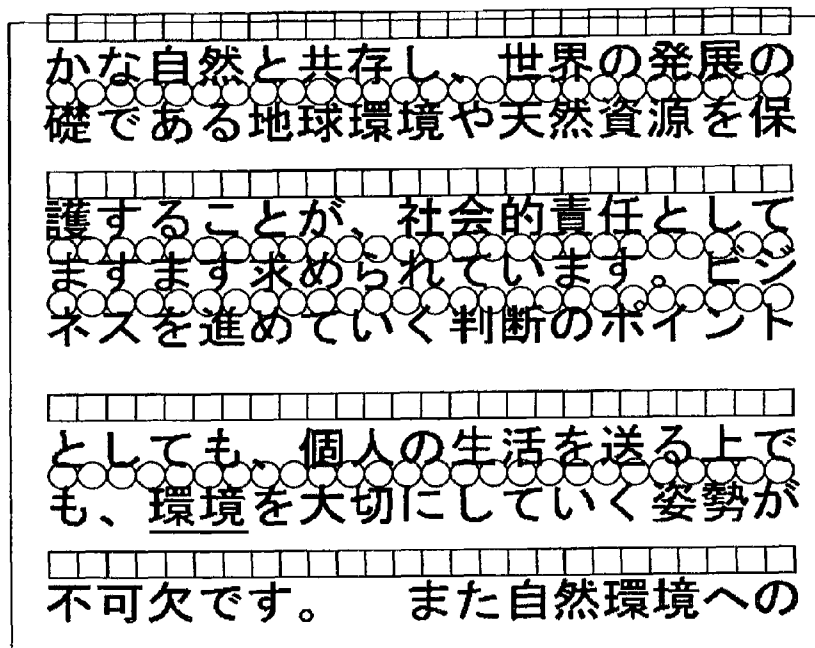 かな自然と共存し、世界の発展の
礎である地球環境や天然資源を保
護することが、社会的責任として
ますます求められています。ビジ
ネスを進めていく判断のポイント
としても、個人の生活を送る上で
も、環境を大切にしていく姿勢が
不可欠です。　また自然環境への